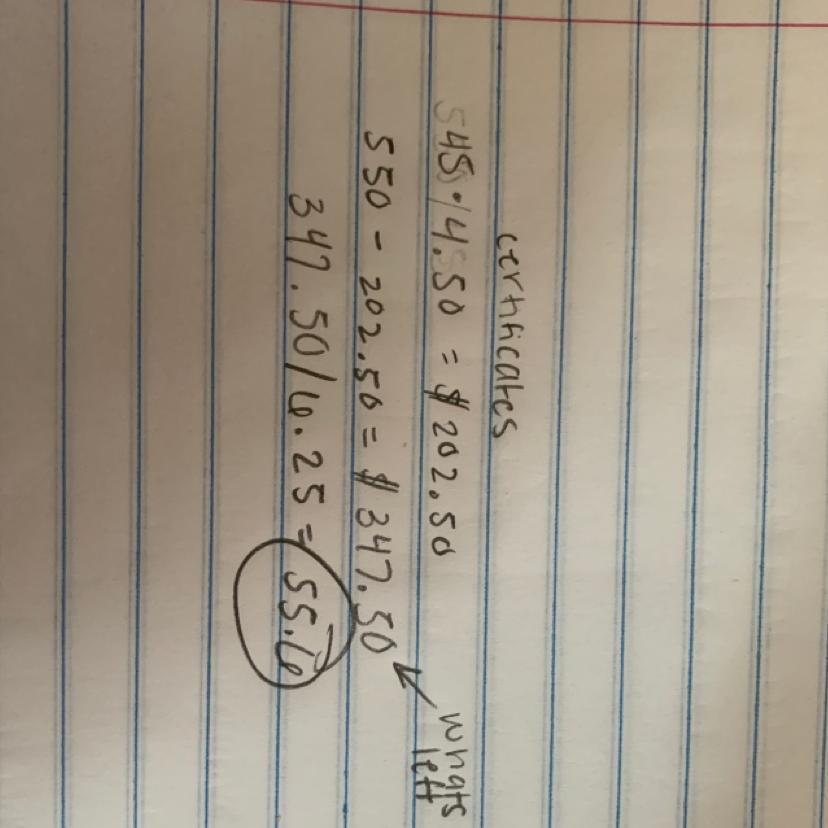 certificates
45 · 4.50 = $202.50
550 - 202.50 = $347.50
whats
left
347.50/6.25 = 55.6